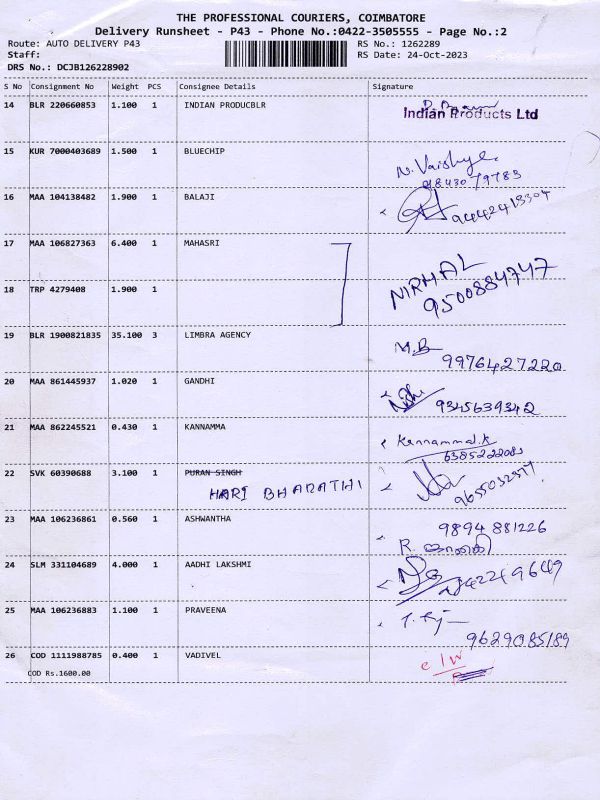 THE PROFESSIONAL COURIERS, COIMBATORE
Delivery Runsheet - P43 - Phone No.:0422-3505555 - Page No.:2
Route: AUTO DELIVERY P43 RS No.: 1262289
Staff: RS Date: 24-Oct-2023
DRS No.: DCJB126228902
S No Consignment No Weight PCS Consignee Details Signature
14 BLR 220660853 1.100 1 INDIAN PRODUCBLR Indian Products Ltd
15 KUR 7000403689 1.500 1 BLUECHIP N. Vaishya.
9843079783
16 MAA 104138482 1.900 1 BALAJI 9442413304
17 MAA 106827363 6.400 1 MAHASRI NIRMAL
18 TRP 4279408 1.900 1 9500884747
19 BLR 1900821835 35.100 3 LIMBRA AGENCY M.B
9976427220
20 MAA 861445937 1.020 1 GANDHI 9345639342
21 MAA 862245521 0.430 1 KANNAMMA Kannammal.K
22 SVK 60390688 3.100 1 PURAN SINGH
HARI BHARATHI
23 MAA 106236861 0.560 1 ASHWANTHA 9894 881226
R. ஜானகி
24 SLM 331104689 4.000 1 AADHI LAKSHMI
25 MAA 106236883 1.100 1 PRAVEENA
9629085189
26 COD 1111988785 0.400 1 VADIVEL c/w
COD Rs.1600.00